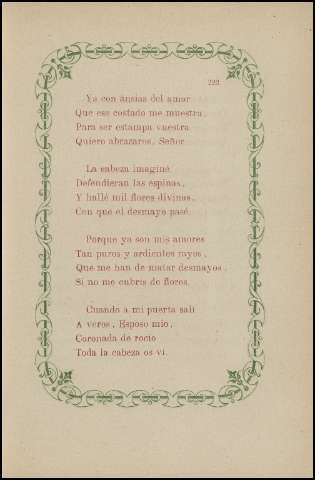 223
Ya con ánsias del amor
Que ese costado me muestra,
Para ser estampa vuestra
Quiero abrazaros, Señor.
La cabeza imaginé
Defendieran las espinas,
Y hallé mil flores divinas,
Con que el desmayo pasé.
Porque ya son mis amores
Tan puros y ardientes rayos,
Que me han de matar desmayos,
Si no me cubrís de flores.
Cuando á mi puerta salí
A veros, Esposo mio,
Coronada de rocío
Toda la cabeza os ví.